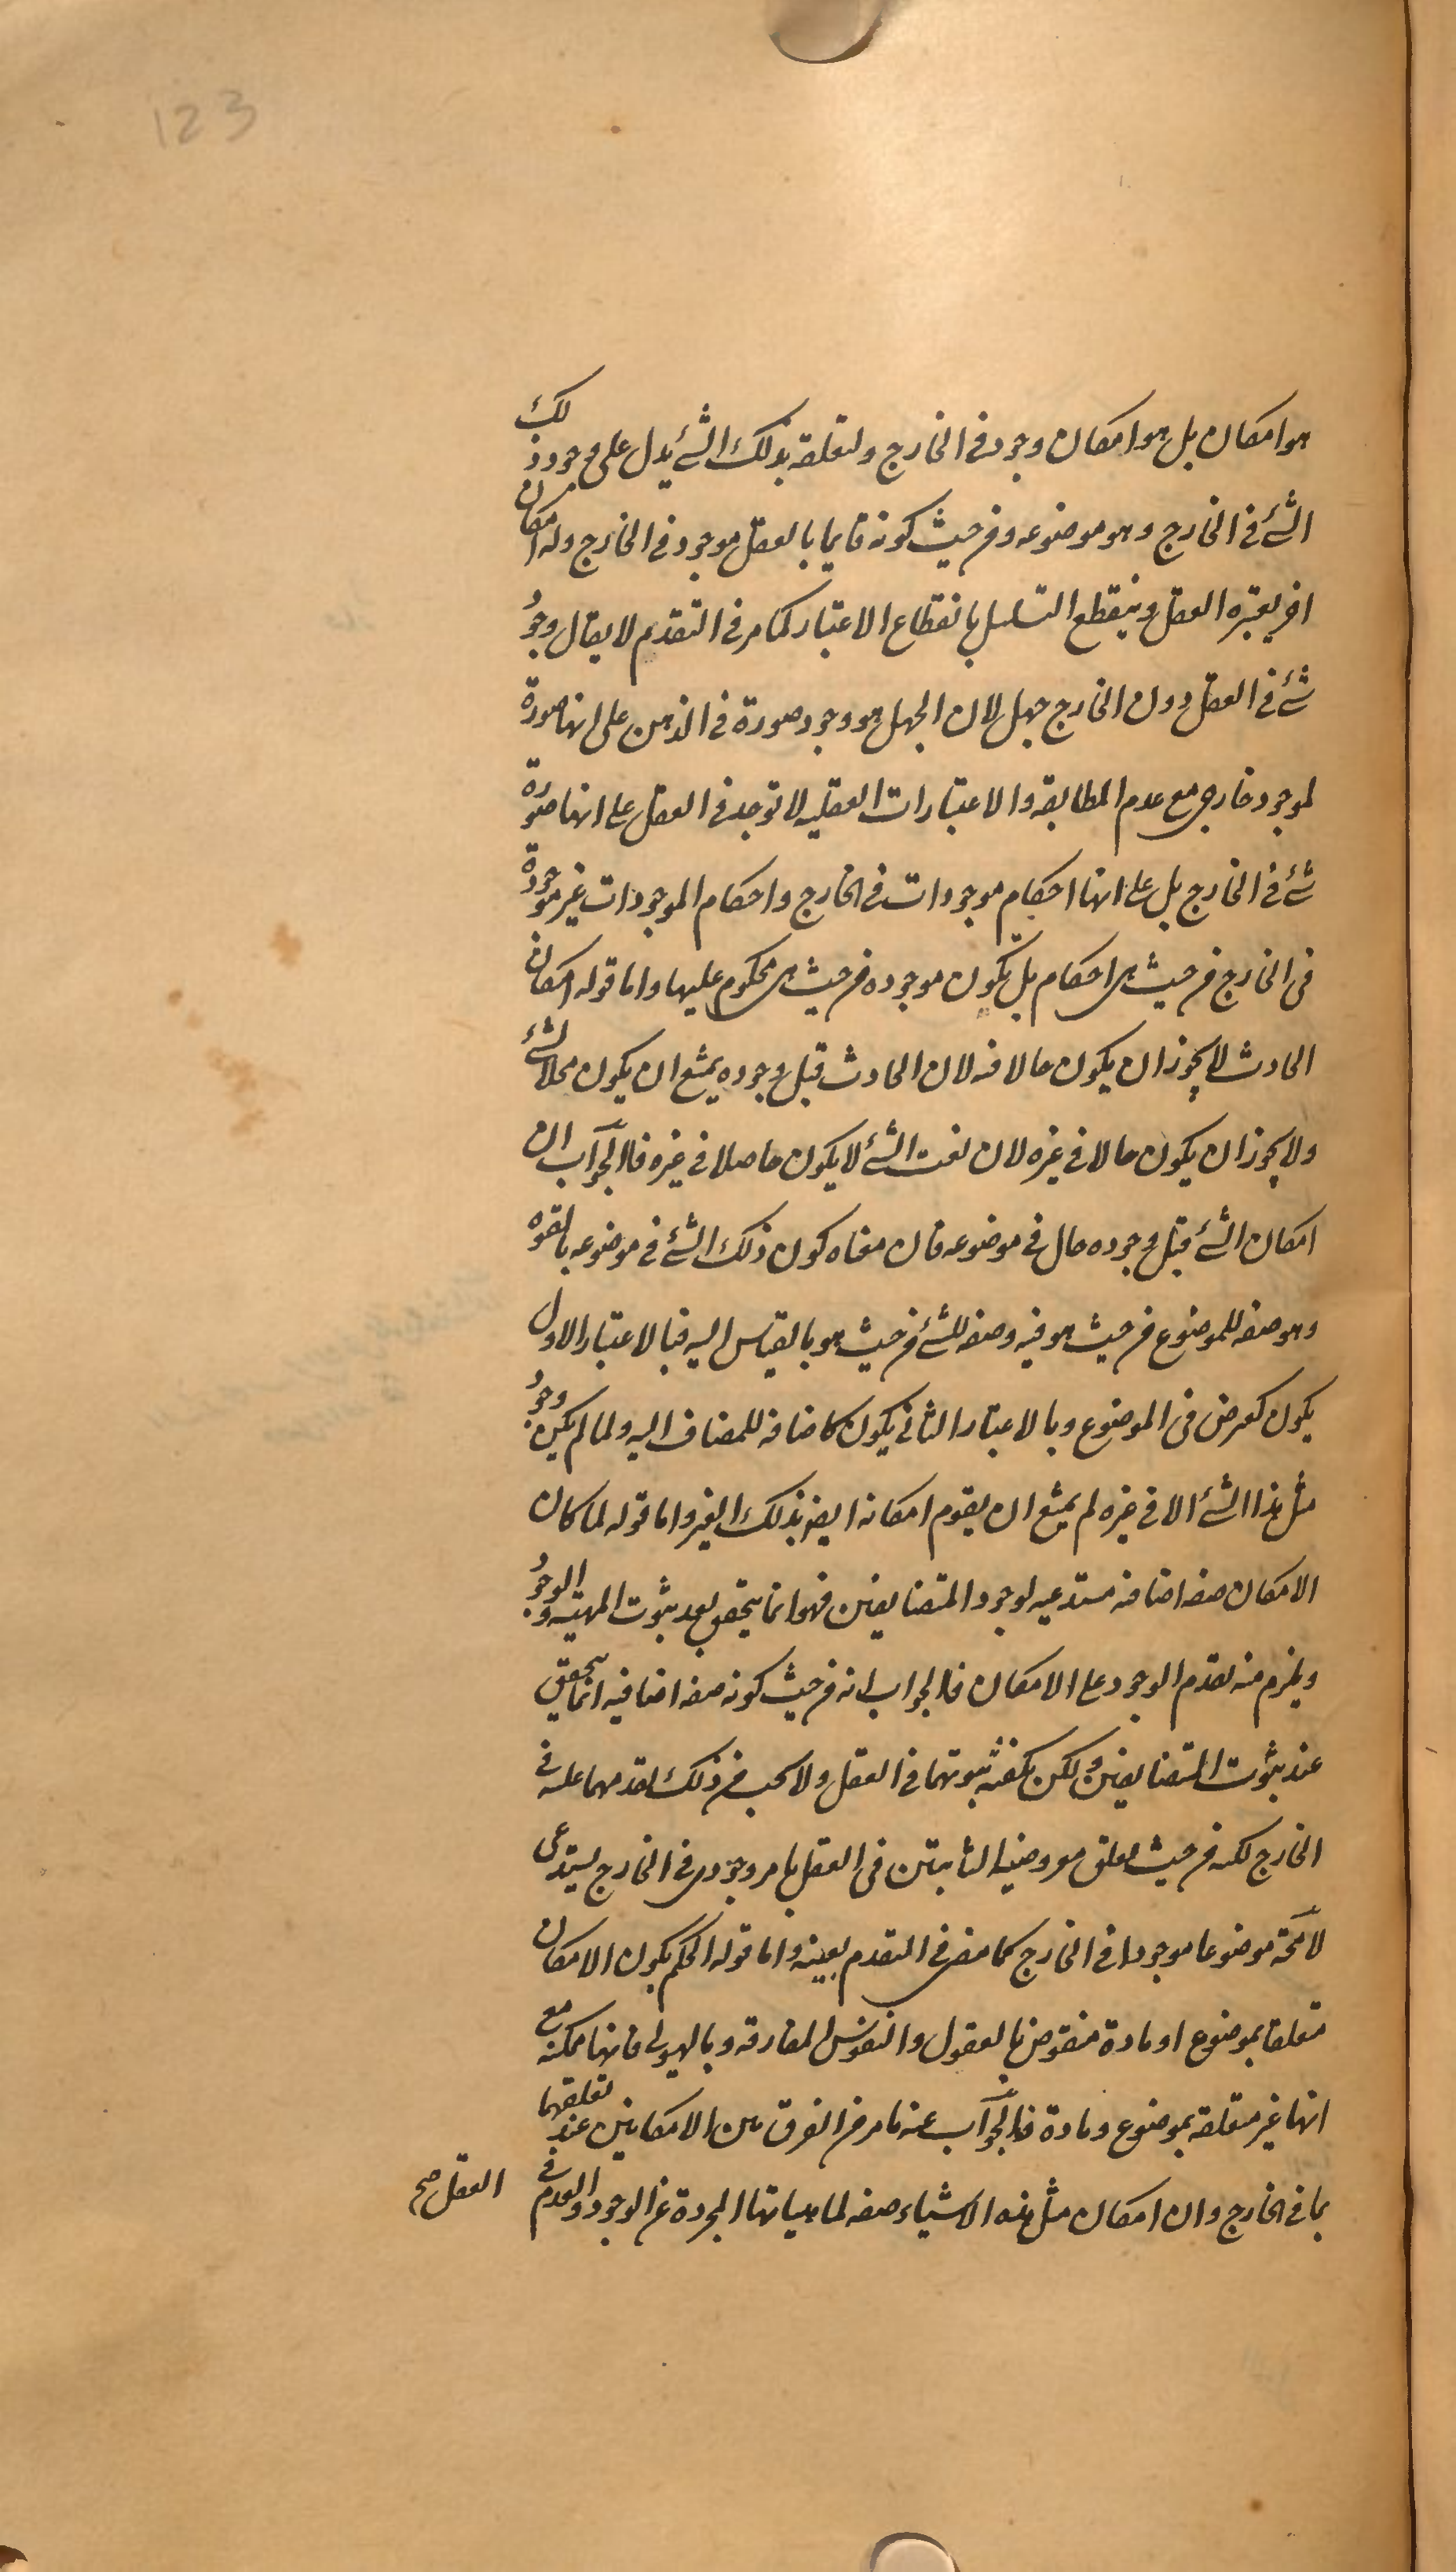 123
هو امكان بل هو امكان وجود فى الخارج ولتعلقه بذلك الشئ يدل على وجود ذلك
الشئ فى الخارج وهو موضوعه ومن حيث كونه قايما بالعقل موجود فى الخارج وله امكان
اخر يعتبره العقل وينقطع التسلسل بانقطاع الاعتبار كما مر فى التقدم لا يقال وجود
شئ فى العقل دون الخارج جهل لان الجهل هو وجود صورة فى الذهن على انها صورة
لموجود خارجى مع عدم المطابقه والاعتبارات العقليه لا توجد فى العقل على انها صورة
شئ فى الخارج بل على انها احكام موجودات فى الخارج واحكام الموجودات غير موجودة
فى الخارج من حيث هى احكام بل تكون موجوده من حيث هى محكوم عليها واما قوله امكان
الحادث لا يجوز ان يكون حالا فيه لان الحادث قبل وجوده يمتنع ان يكون محلا لشئ
ولا يجوز ان يكون حالا فى غيره لان نعت الشئ لا يكون حاصلا فى غيره فالجواب ان
امكان الشئ قبل وجوده حال فى موضوعه فان معناه كون ذلك الشئ فى موضوعه بالقوه
وهو صفه للموضوع من حيث هو فيه وصفه للشئ من حيث هو بالقياس اليه فبالاعتبار الاول
يكون كعرض فى الموضوع وبالاعتبار الثانى يكون كاضافه للمضاف اليه ولما لم يكن وجود
مثل هذا الشئ الا فى غيره لم يمتنع ان يقوم امكانه ايضا بذلك الغير واما قوله لما كان
الامكان صفه اضافيه مستدعيه لوجود المتضايفين فهو انما يتحقق بعد ثبوت المهيه والوجود
ويلزم منه تقدم الوجود على الامكان فالجواب انه من حيث كونه صفه اضافيه انما يتحقق
عند ثبوت المتضايفين ولكن يكفيه ثبوتهما فى العقل ولا يجب من ذلك تقدمهما عليه فى
الخارج لكنه من حيث تعلق معروضيه الثابتين فى العقل بامر وجودى فى الخارج يستدعى
لا محة موضوعا موجودا فى الخارج كما مضى فى التقدم بعينه واما قوله الحكم بكون الامكان
متعلقا بموضوع او مادة منقوض بالعقول والنفوس المفارقه وبالهيولى فانها ممكنه مع
انها غير متعلقه بموضوع ومادة فالجواب عنه ما مر من الفرق بين الامكانين عند تعلقهما
بما فى الخارج وان امكان مثل هذه الاشياء صفه لماهياتها المجردة عن الوجود والعدم فى
العقل صح